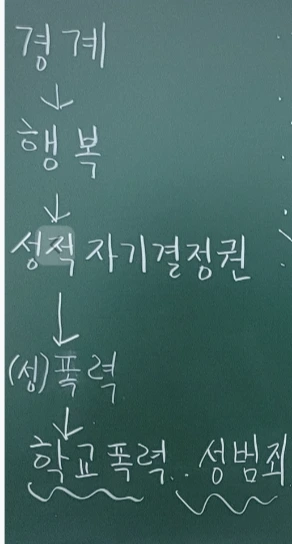 경계
↓
행복
↓
성적 자기결정권
↓
(성)폭력
↓
학교폭력.. 성범죄